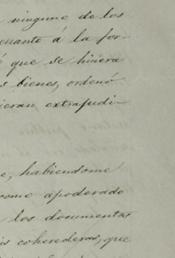 ninguno de los
cuanto á la for-
que se hiciera
bienes, ordenó
extrajudi-
habiendome
como apoderado
los documentos
coherederos, que